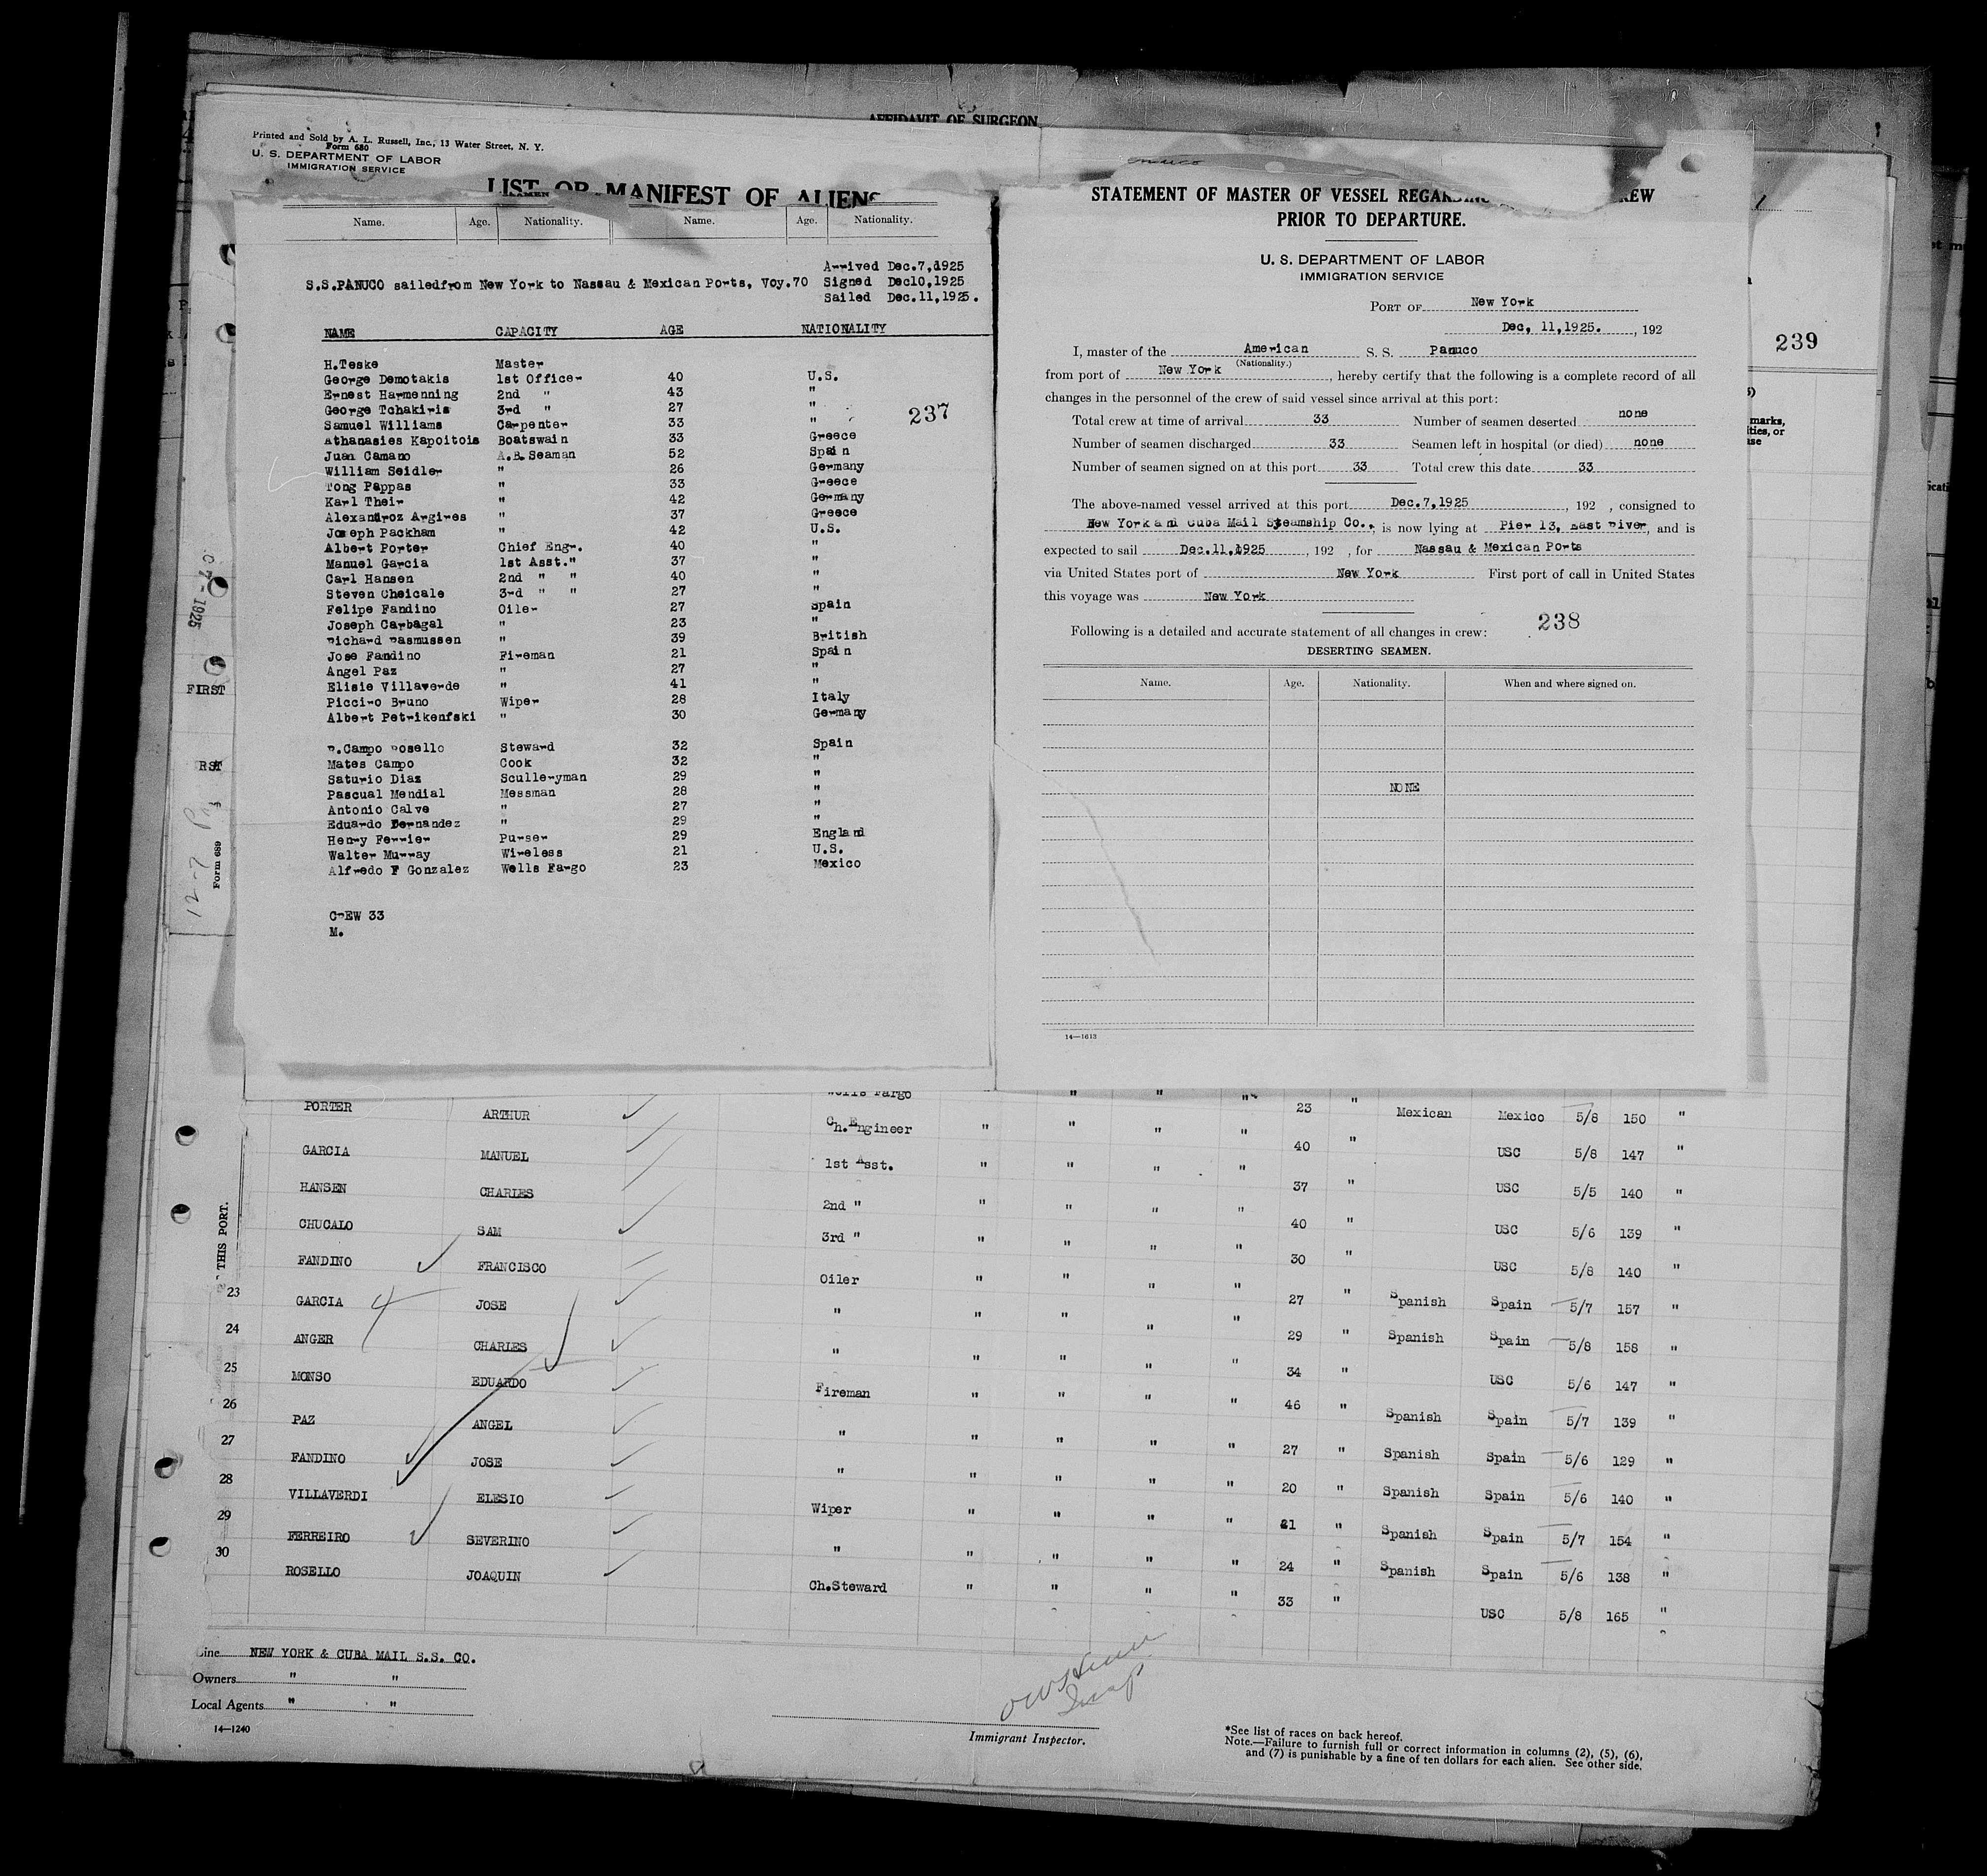 AFFIDAVIT OF SURGEON
Printed and Sold by A. L. Russell, Inc., 13 Water Street, N. Y.
Form 680
U. S. DEPARTMENT OF LABOR
IMMIGRATION SERVICE
LIST OR MANIFEST OF ALIENS
Name. Age. Nationality. Name. Age. Nationality.
Arrived Dec.7,1925
S.S.PANUCO sailedfrom New York to Nassau & Mexican Ports, Voy.70 Signed Dec10,1925
Sailed Dec.11,1925.
NAME CAPACITY AGE NATIONALITY
H.Teske Master
George Demotakis 1st Officer 40 U.S.
Ernest Harmenning 2nd " 43 "
George Tchakiris 3rd " 27 "
Samuel Williams Carpenter 33 "
237
Athanasies Kapoitois Boatswain 33 Greece
Juan Camano A.B.Seaman 52 Spain
William Seidler " 26 Germany
Tong Pappas " 33 Greece
Karl Their " 42 Germany
Alexandroz Argires " 37 Greece
Joseph Packham " 42 U.S.
Albert Porter Chief Engr. 40 "
Manuel Garcia 1st Asst." 37 "
Carl Hansen 2nd " " 40 "
Steven Cheicale 3rd " " 27 "
Felipe Fandino Oiler 27 Spain
Joseph Carbagal " 23 "
Richard Rasmussen " 39 British
Jose Fandino Fireman 21 Spain
Angel Paz " 27 "
Elisie Villaverde " 41 "
Picciro Bruno Wiper 28 Italy
Albert Petrikenfski " 30 Germany
R.Campo Rosello Steward 32 Spain
Mates Campo Cook 32 "
Saturio Diaz Sculleryman 29 "
Pascual Mendial Messman 28 "
Antonio Calve " 27 "
Eduardo Fernandez " 29 "
Henry Ferrier Purser 29 England
Walter Murray Wireless 21 U.S.
Alfredo F Gonzalez Wells Fargo 23 Mexico
CREW 33
M.
STATEMENT OF MASTER OF VESSEL REGARDING CREW
PRIOR TO DEPARTURE.
U. S. DEPARTMENT OF LABOR
IMMIGRATION SERVICE
PORT OF New York
Dec, 11,1925. , 192
I, master of the American S. S. Panuco
(Nationality.)
from port of New York , hereby certify that the following is a complete record of all
changes in the personnel of the crew of said vessel since arrival at this port:
Total crew at time of arrival 33 Number of seamen deserted none
Number of seamen discharged 33 Seamen left in hospital (or died) none
Number of seamen signed on at this port 33 Total crew this date 33
The above-named vessel arrived at this port Dec.7,1925 , 192 , consigned to
New York and Cuba Mail Steamship Co., is now lying at Pier 13, East River, and is
expected to sail Dec.11,1925 , 192 , for Nassau & Mexican Ports
via United States port of New York First port of call in United States
this voyage was New York
238
Following is a detailed and accurate statement of all changes in crew:
DESERTING SEAMEN.
Name. Age. Nationality. When and where signed on.
NONE
14—1613
239
marks,
ties, or
07-1925
FIRST
RST
12-7
Form 689
THIS PORT.
Wells Fargo " " " 23 " Mexican Mexico 5/8 150 "
PORTER ARTHUR Ch.Engineer " " " " 40 " USC 5/8 147 "
GARCIA MANUEL 1st Asst. " " " " 37 " USC 5/5 140 "
HANSEN CHARLES 2nd " " " " " 40 " USC 5/6 139 "
CHUCALO SAM 3rd " " " " " 30 " USC 5/8 140 "
FANDINO FRANCISCO Oiler " " " " 27 " Spanish Spain 5/7 157 "
23 GARCIA JOSE " " " " " 29 " Spanish Spain 5/8 158 "
24 ANGER CHARLES " " " " " 34 " USC 5/6 147 "
25 MONSO EDUARDO Fireman " " " " 46 " Spanish Spain 5/7 139 "
26 PAZ ANGEL " " " " " 27 " Spanish Spain 5/6 129 "
27 FANDINO JOSE " " " " " 20 " Spanish Spain 5/6 140 "
28 VILLAVERDI ELESIO Wiper " " " " 41 " Spanish Spain 5/7 154 "
29 FERREIRO SEVERINO " " " " " 24 " Spanish Spain 5/6 138 "
30 ROSELLO JOAQUIN Ch.Steward " " " " 33 " USC 5/8 165 "
Line NEW YORK & CUBA MAIL S.S. CO.
Owners " "
Local Agents " "
14—1240
Immigrant Inspector.
*See list of races on back hereof.
Note.—Failure to furnish full or correct information in columns (2), (5), (6),
and (7) is punishable by a fine of ten dollars for each alien. See other side.